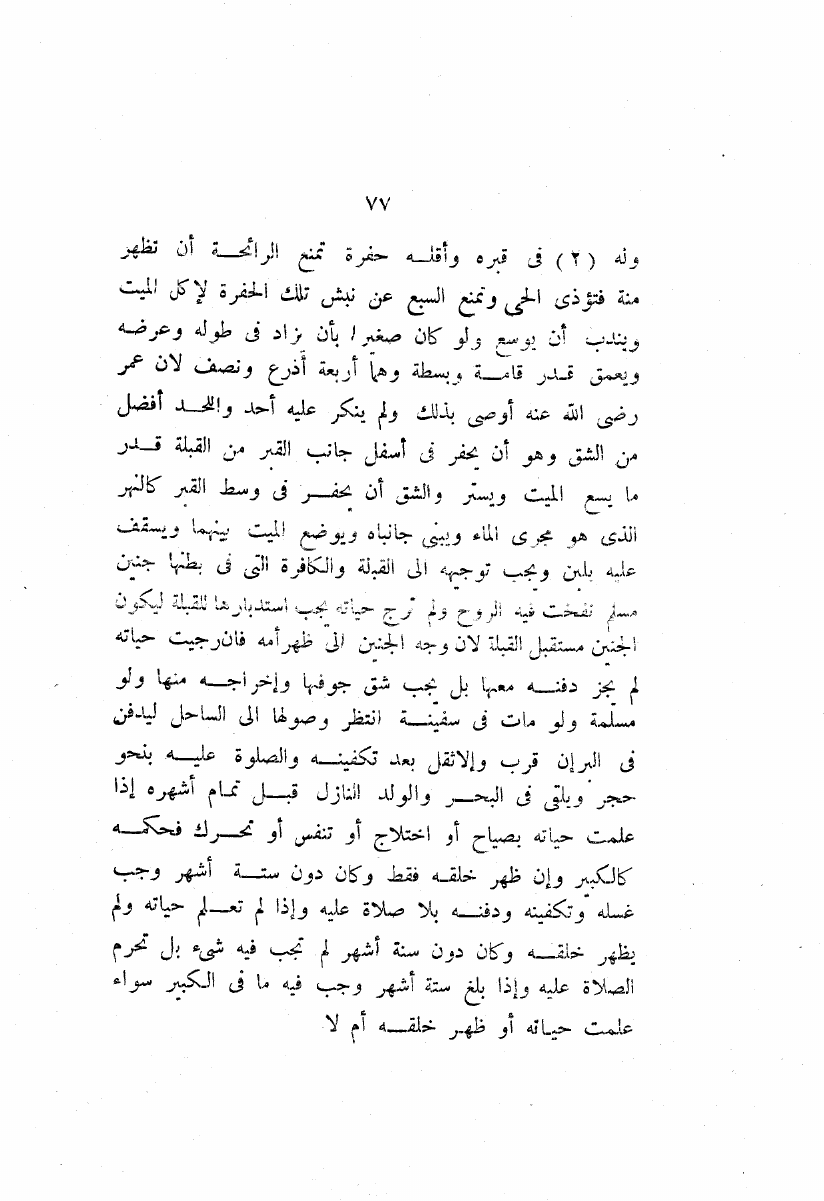 ٧٧
وله (٢) فى قبره وأقلـــه حفرة تمنع الرائحـــة أن تظهر
منة فتؤذى الحى وتمنع السبع عن نبش تلك الحفرة لإكل الميت
ويندب أن يوسع ولو كان صغيرا بأن يزاد فى طوله وعرضه
ويعمق قدر قامة وبسطة وهما أربعة أذرع ونصف لان عمر
رضى الله عنه أوصى بذلك ولم ينكر عليه أحد واللحد أفضل
من الشق وهو أن يحفر فى أسفل جانب القبر من القبلة قدر
ما يسع الميت ويستر والشق أن يحفر فى وسط القبر كالنهر
الذى هو مجرى الماء ويبنى جانباه ويوضع الميت بينهما ويسقف
عليه بلبن ويجب توجيهه الى القبلة والكافرة التى فى بطنها جنين
مسلم نفخت فيه الروح ولم ترج حياته يجب استدبارها للقبلة ليكون
الجنين مستقبل القبلة لان وجه الجنين الى ظهر أمه فان رجيت حياته
لم يجز دفنه معها بل يجب شق جوفها وإخراجه منها ولو
مسلمة ولو مات فى سفينة انتظر وصولها الى الساحل ليدفن
فى البر إن قرب وإلا ثقل بعد تكفينه والصلوة عليه بنحو
حجر ويلقى فى البحر والولد النازل قبل تمام أشهره إذا
علمت حياته بصياح أو اختلاج أو تنفس أو تحرك فحكمه
كالكبير وإن ظهر خلقه فقط وكان دون ستة أشهر وجب
غسله وتكفينه ودفنه بلا صلاة عليه وإذا لم تعلم حياته ولم
يظهر خلقه وكان دون ستة أشهر لم تجب فيه شىء بل تحرم
الصلاة عليه وإذا بلغ ستة أشهر وجب فيه ما فى الكبير سواء
علمت حياته أو ظهر خلقه أم لا